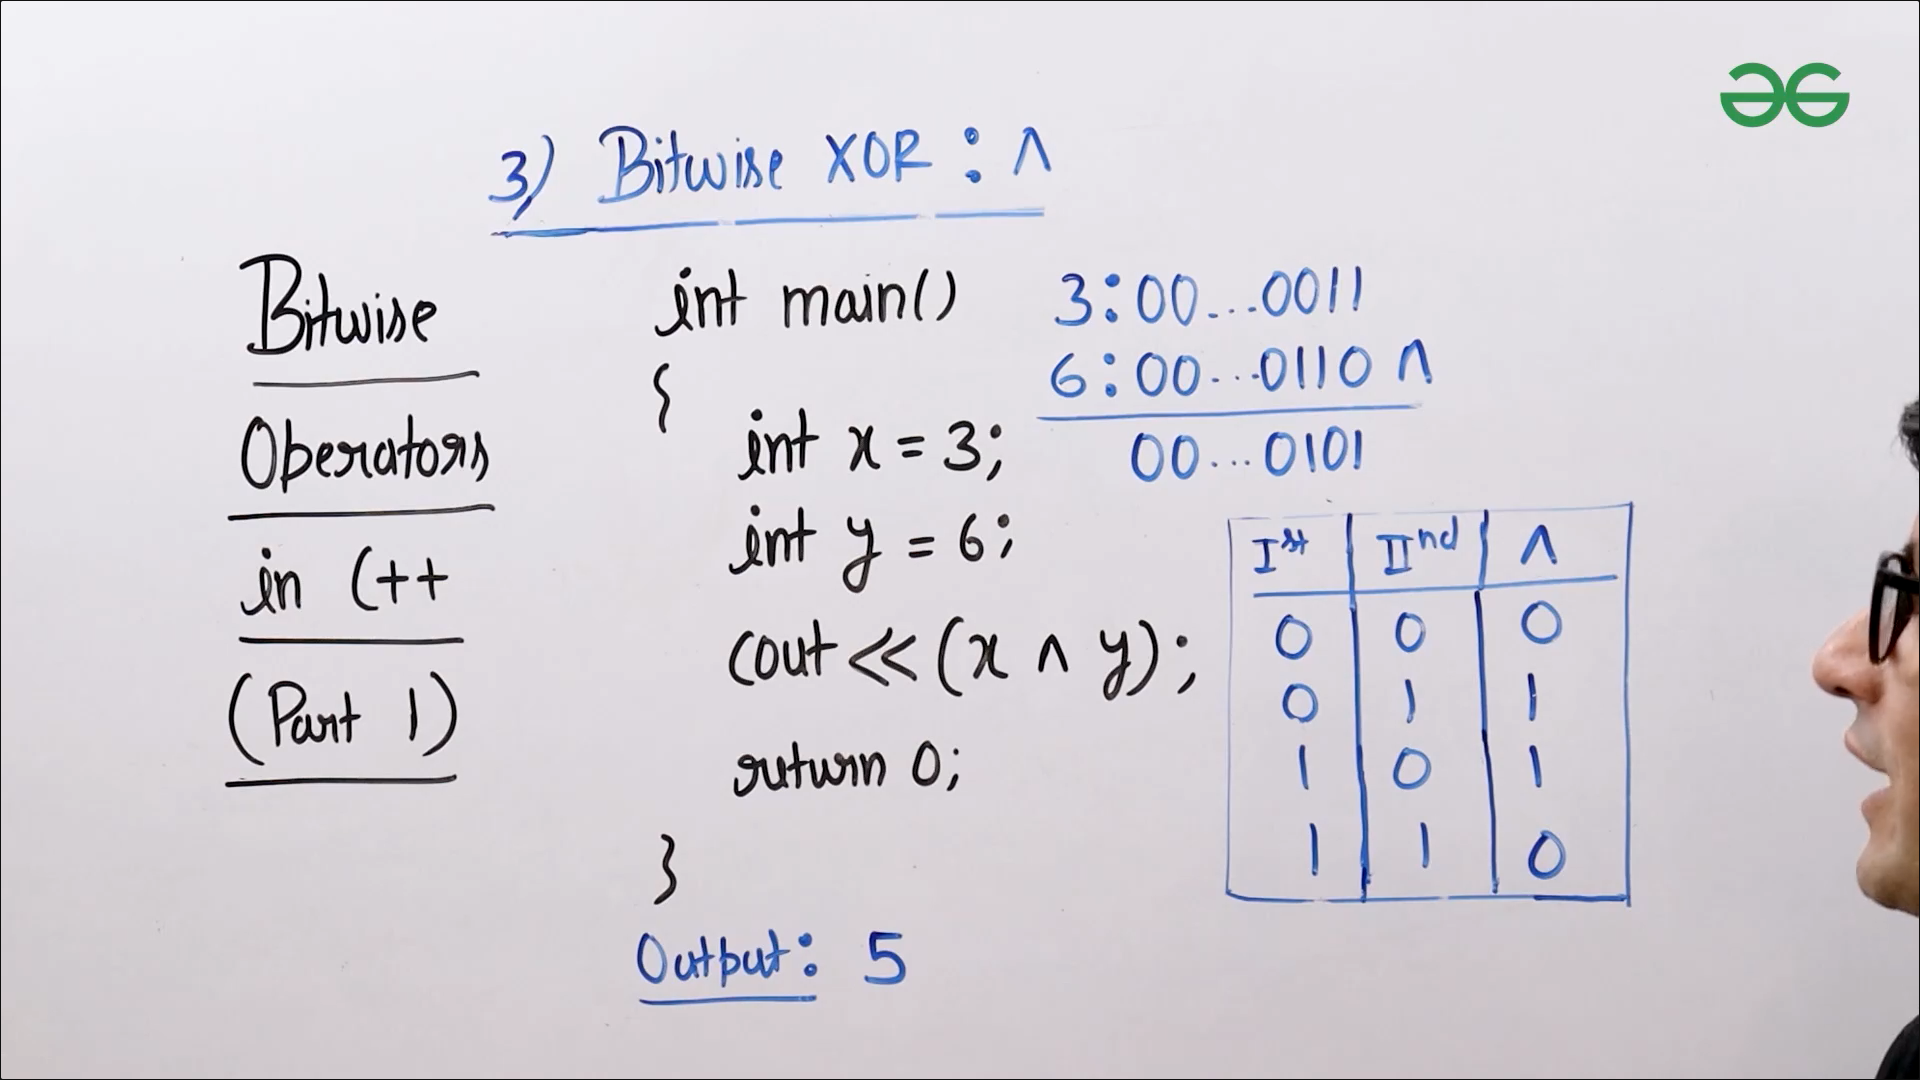 3) Bitwise XOR : ^
Bitwise
Operators
in C++
(Part 1)
int main()
{
int x = 3;
int y = 6;
cout << (x ^ y);
return 0;
}
Output: 5
3:00...0011
6:00...0110 ^
00...0101
Ist IInd ^
0 0 0
0 1 1
1 0 1
1 1 0